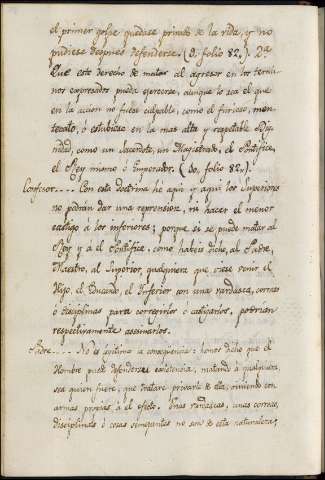 el primer golpe quedase privado de la vida, y no
pudiese despues defenderse. (d. folio 82.). 2ª
Que este derecho de matar al agresor en los termi-
nos expresados pueda ejercerse, aunque lo sea el que
en la accion no fuese culpable, como el furioso, men-
tecato, ó estubiese en la mas alta y respetable Dig-
nidad, como un Sacerdote, un Magistrado, el Pontifice,
el Rey mismo ó Emperador. (do. folio 82.).
Confesor.... Con esta doctrina he aqui y aqui los Superiores
no podrán dar una reprension, ni hacer el menor
castigo á los inferiores; porque si se puede matar al
Rey y á el Pontifice, como habeis dicho, al Padre,
Maestro, al Superior, qualquiera que viese venir el
Hijo, el Educando, el Inferior con una vardasca, correas
ó disciplinas para corregirlos ó castigarlos, podrian
respectivamente asesinarlos.
Padre.... No es legitima la consequencia: hemos dicho que el
Hombre puede defender su existencia, matando á qualquiera
sea quien fuere, que tratare privarle de ella, viniendo con
armas propias á el efecto. Unas vardascas, unas correas,
disciplinas ó cosas semejantes no son de esta naturaleza,